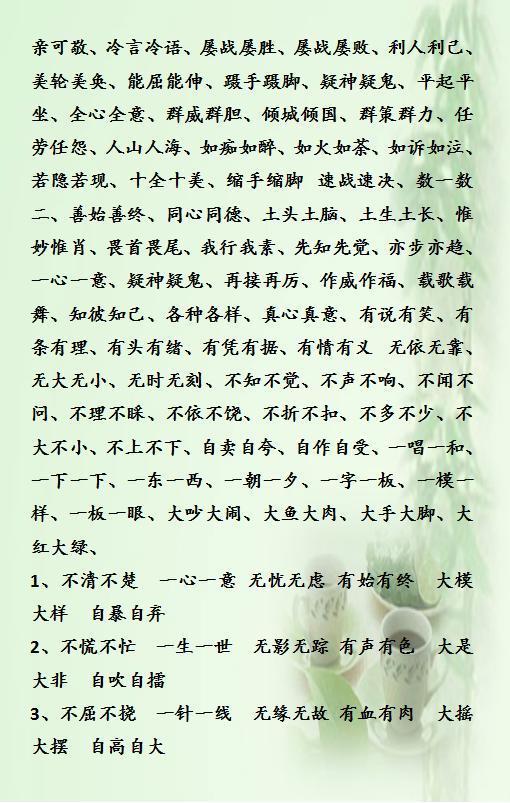 亲可敬、冷言冷语、屡战屡胜、屡战屡败、利人利己、
美轮美奂、能屈能伸、蹑手蹑脚、疑神疑鬼、平起平
坐、全心全意、群威群胆、倾城倾国、群策群力、任
劳任怨、人山人海、如痴如醉、如火如荼、如诉如泣、
若隐若现、十全十美、缩手缩脚 速战速决、数一数
二、善始善终、同心同德、土头土脑、土生土长、惟
妙惟肖、畏首畏尾、我行我素、先知先觉、亦步亦趋、
一心一意、疑神疑鬼、再接再厉、作威作福、载歌载
舞、知彼知己、各种各样、真心真意、有说有笑、有
条有理、有头有绪、有凭有据、有情有义 无依无靠、
无大无小、无时无刻、不知不觉、不声不响、不闻不
问、不理不睬、不依不饶、不折不扣、不多不少、不
大不小、不上不下、自卖自夸、自作自受、一唱一和、
一下一下、一东一西、一朝一夕、一字一板、一模一
样、一板一眼、大吵大闹、大鱼大肉、大手大脚、大
红大绿、
1、不清不楚 一心一意 无忧无虑 有始有终 大模
大样 自暴自弃
2、不慌不忙 一生一世 无影无踪 有声有色 大是
大非 自吹自擂
3、不屈不挠 一针一线 无缘无故 有血有肉 大摇
大摆 自高自大